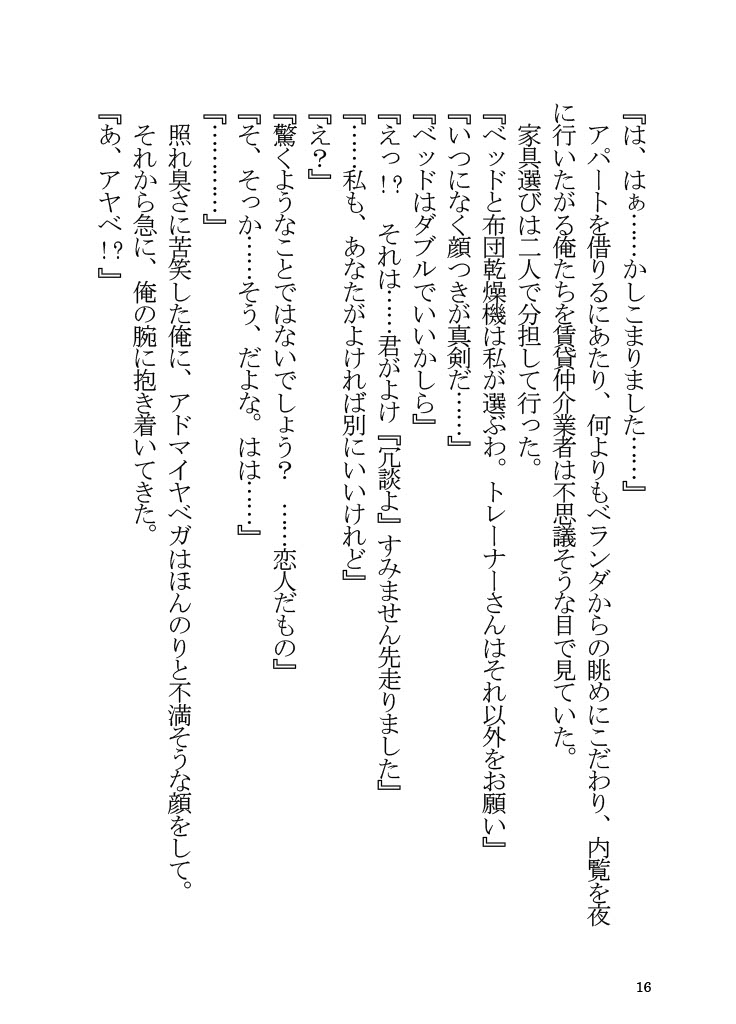 『は、はぁ……かしこまりました……』
　アパートを借りるにあたり、何よりもベランダからの眺めにこだわり、内覧を夜
に行いたがる俺たちを賃貸仲介業者は不思議そうな目で見ていた。
　家具選びは二人で分担して行った。
『ベッドと布団乾燥機は私が選ぶわ。トレーナーさんはそれ以外をお願い』
『いつになく顔つきが真剣だ……』
『ベッドはダブルでいいかしら』
『えっ!?　それは……君がよけ『冗談よ』すみません先走りました』
『……私も、あなたがよければ別にいいけれど』
『え？』
『驚くようなことではないでしょう？　……恋人だもの』
『そ、そっか……そう、だよな。はは……』
『…………』
　照れ臭さに苦笑した俺に、アドマイヤベガはほんのりと不満そうな顔をして。
　それから急に、俺の腕に抱き着いてきた。
『あ、アヤベ!?』
16